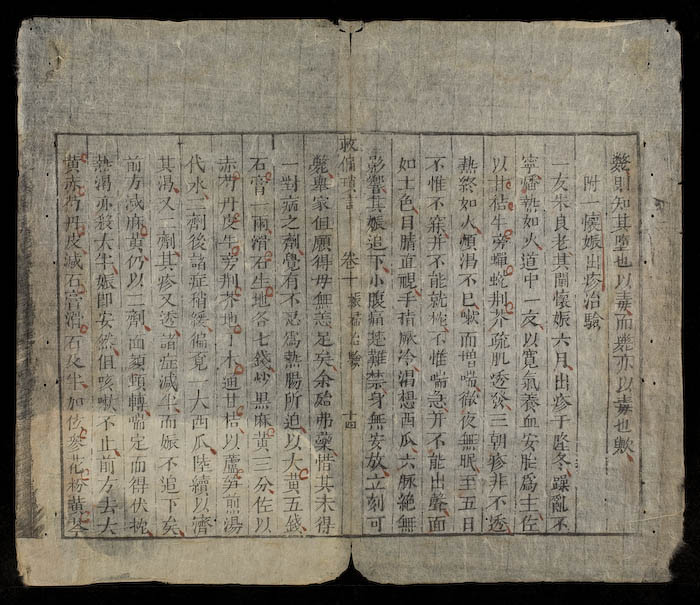 斃則知其墮也以毒而斃亦以毒也歟
附一懷娠出疹治驗
一友朱良老其閫懷娠六月出疹于隆冬躁亂不
寧熱如火道中一友以寬氣養血安胎爲主佐
以甘桔牛旁蟬蛇荆芥疏肌透發三朝疹非不透
熱終如火煩渴不已嗽而增喘徹夜無眠至五日
不惟不寐并不能就枕不惟喘急并不能出聲面
如土色目睛直視手厥冷渴想西瓜六脉絶無
影響其娠追下小腹痛楚難禁身無安放立刻可
救偏瑣言 卷十 娠孺治驗 十四
斃舉家但願得母無恙足矣余始弗藥惜其未得
一對病之劑覺有不忍爲熱腸所迫以大黃五錢
石膏一兩滑石生地各七錢炒黑麻黃三分佐以
赤芍丹皮牛旁荆芥地丁木通甘桔以蘆笋煎湯
代水二劑後諸症稍緩偏覔一大西瓜陸續以濟
其渴又二劑其疹又透諸症減半而娠不追下矣
前方減麻黃仍以二劑面顏頓轉喘定而得伏枕
熱渴亦殺大半娠即安然但咳嗽不止前方去大
黃赤芍丹皮減石膏滑石及半加參花粉黃芩